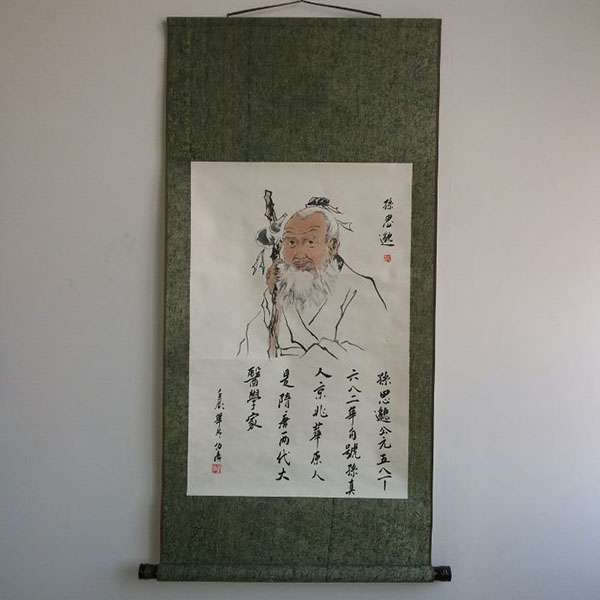 孫思邈
孫思邈公元五八一
六八二年自號孫真
人京兆華原人
是隋唐兩代大
醫學家